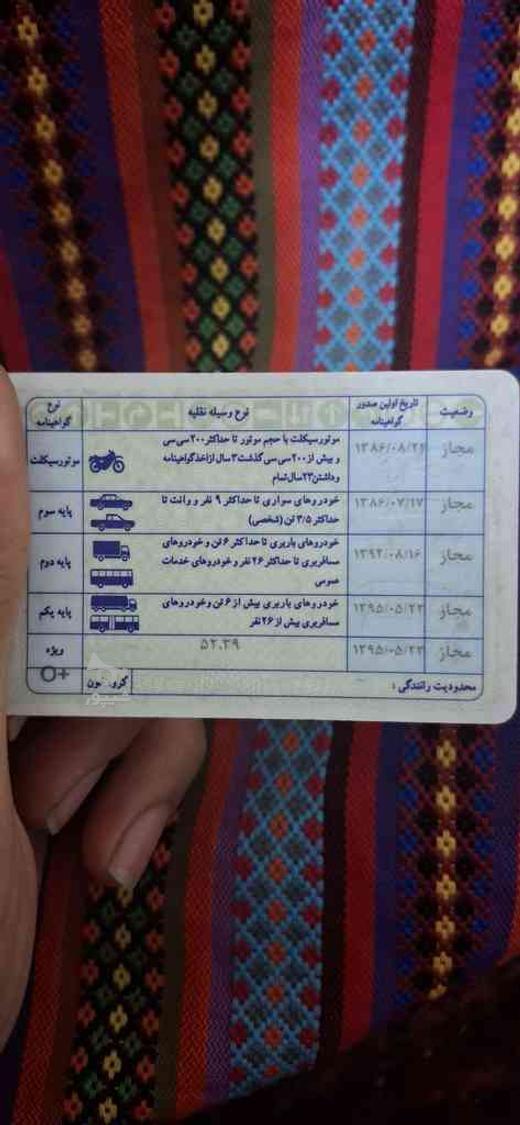 نوع گواهینامه	نوع وسیله نقلیه	تاریخ اولین صدور گواهینامه	وضعیت
موتورسیکلت	موتورسیکلت با حجم موتور تا حداکثر ۲۰۰ سی سی	۱۳۸۶/۰۸/۲۶	مجاز
و بیش از ۲۰۰ سی سی گذشت ۳ سال از اخذ گواهینامه
و داشتن ۲۳ سال تمام
پایه سوم	خودروهای سواری تا حداکثر ۹ نفر و وانت تا	۱۳۸۶/۰۷/۱۷	مجاز
حداکثر ۳/۵ تن (شخصی)
پایه دوم	خودروهای باربری تا حداکثر ۶ تن و خودروهای	۱۳۹۲/۰۸/۱۶	مجاز
مسافربری تا حداکثر ۲۶ نفر و خودروهای خدمات
عمومی
پایه یکم	خودروهای باربری بیش از ۶ تن و خودروهای	۱۳۹۵/۰۵/۲۳	مجاز
مسافربری بیش از ۲۶ نفر
ویژه	۵۲.۳۹	۱۳۹۵/۰۵/۲۳	مجاز
O+	گروه خون	محدودیت رانندگی :
شیپور